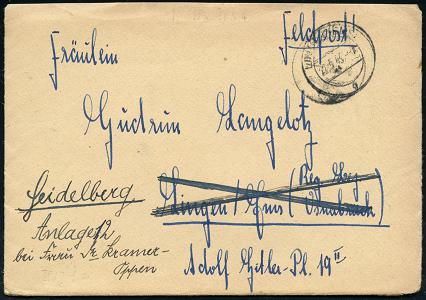 Feldpost!
Fräulein
Gudrun Langelotz
Lingen / Ems (Reg. Bez. Osnabrück)
Adolf Hitler-Pl. 19 II
Heidelberg
bei Frau Dr. Kramer-
Oppen